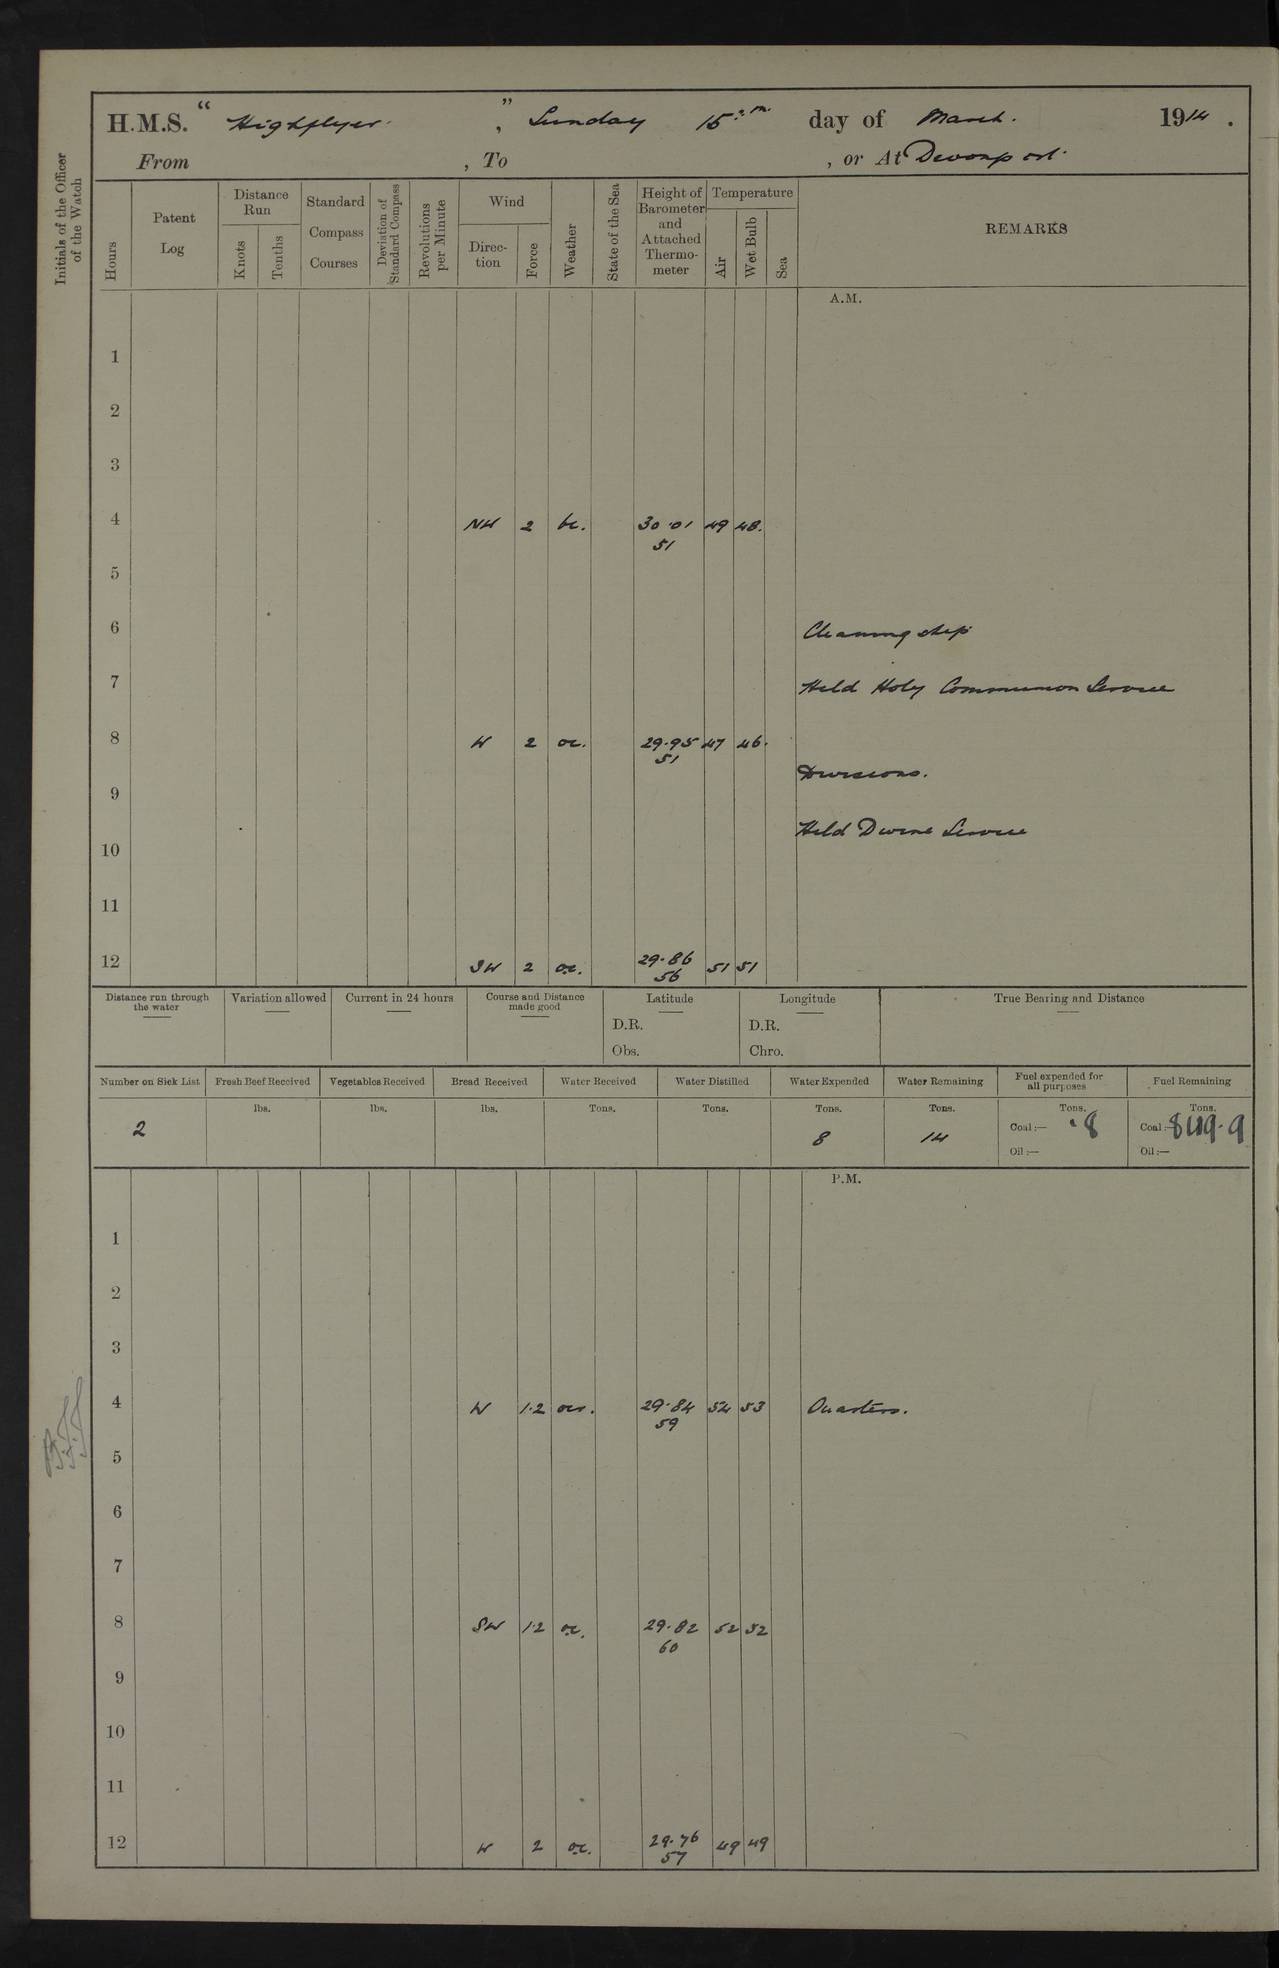 H.M.S. "Highflyer.", Sunday 15th day of March. 1914.
From , To , or At Devonport.
Initials of the Officer of the Watch
Hours
Patent Log
Distance Run
Knots
Tenths
Standard Compass Courses
Deviation of Standard Compass
Revolutions per Minute
Wind
Direction
Force
Weather
State of the Sea
Height of Barometer and Attached Thermometer
Temperature
Air
Wet Bulb
Sea
REMARKS
A.M.
1
2
3
4 NW 2 bc. 30.01 49 48.
51
5
6 Cleaning ship
7 Held Holy Communion Service
8 W 2 oc. 29.95 47 46.
51
Divisions.
9
Held Divine Service
10
11
12 SW 2 oc. 29.86 51 51
56
Distance run through the water
Variation allowed
Current in 24 hours
Course and Distance made good
Latitude
D.R.
Obs.
Longitude
D.R.
Chro.
True Bearing and Distance
Number on Sick List
2
Fresh Beef Received
lbs.
Vegetables Received
lbs.
Bread Received
lbs.
Water Received
Tons.
Water Distilled
Tons.
Water Expended
Tons.
8
Water Remaining
Tons.
14
Fuel expended for all purposes
Tons.
Coal:— .8
Oil:—
Fuel Remaining
Tons.
Coal:— 849.9
Oil:—
P.M.
1
2
3
4 W 1.2 29.84 54 53 Quarters.
59
5
6
7
8 SW 1.2 oc. 29.82 52 52
60
9
10
11
12 W 2 oc. 29.76 49 49
57